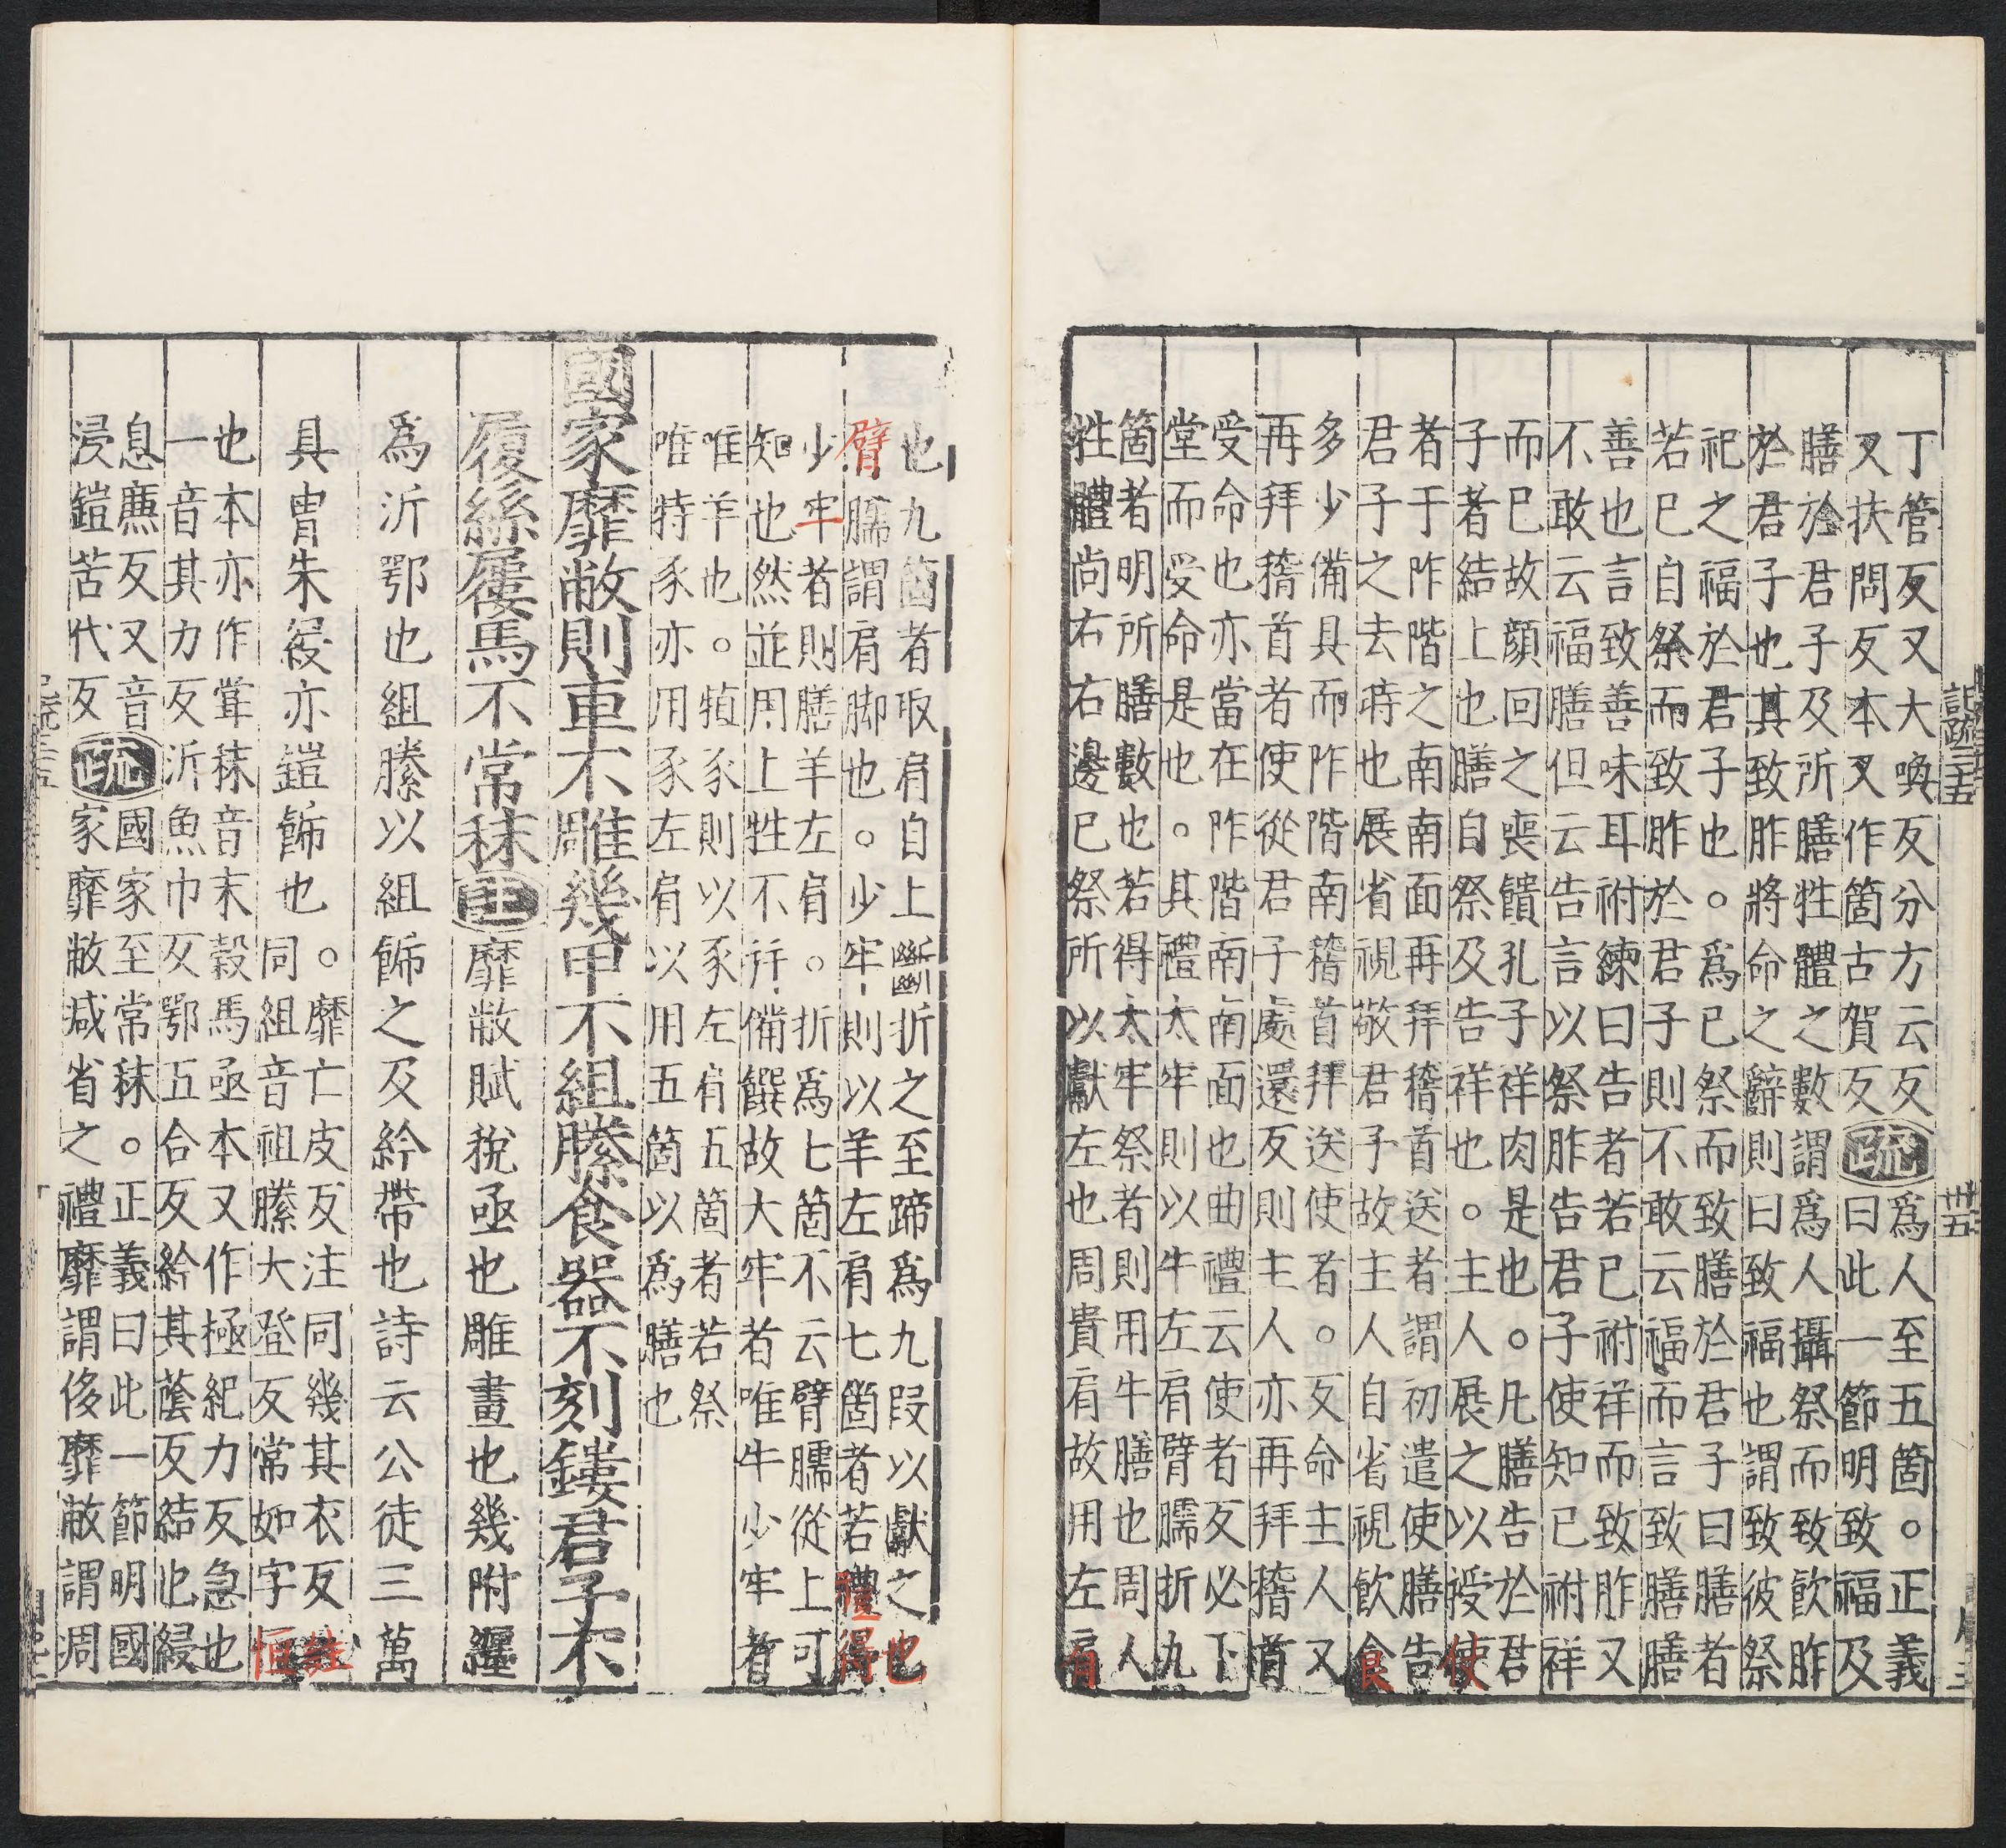 記疏三十五
卅五
丁管反又大喚反分方云反
又扶問反本又作箇古賀反
疏
爲人至五箇。正義
曰此一節明致福及
膳於君子及所膳牲體之數謂爲人攝祭而致飮胙
於君子也其致胙將命之辭則曰致福也謂致彼祭
祀之福於君子也。爲已祭而致膳於君子曰膳者
若已自祭而致胙於君子則不敢云福而言致膳膳
善也言致善味耳祔練曰告者若已祔祥而致胙又
不敢云福膳但云告言以祭胙告君子使知已祔祥
而已故顔回之喪饋孔子祥肉是也。凡膳告於君
子者結上也膳自祭及告祥也。主人展之以授使
者于阼階之南南面再拜稽首送者謂初遣使膳告
君子之去時也展省視敬君子故主人自省視飲食
多少備具而阼階南稽首拜送使者。反命主人又
再拜稽首者使從君子處還反則主人亦再拜稽首
受命也亦當在阼階南南面也曲禮云使者反必下
堂而受命是也。其禮太牢則以牛左肩臂臑折九
箇者明所膳數也若得太牢祭者則用牛膳也周人
牲體尚右右邊已祭所以獻左也周貴肩故用左肩
也九箇者取肩自上斷折之至蹄爲九段以獻之也
臂臑謂肩脚也。少牢則以羊左肩七箇者若禮得
少牢者則膳羊左肩。折爲七箇不云臂臑從上可
知也然並用上牲不并備饌故大牢者唯牛少牢者
唯羊也。犆豕則以豕左肩五箇者若祭
唯特豕亦用豕左肩以用五箇以爲膳也
國家靡敝則車不雕幾甲不組縢食器不刻鏤君子不
履絲屨馬不常秣注靡敝賦稅亟也雕畫也幾附纏
爲沂鄂也組縢以組飾之及紟帶也詩云公徒三萬
具胄朱綅亦鎧飾也
。靡亡皮反注同幾其衣反註
同組音祖縢大登反常如字恒
也本亦作甞秣音末穀馬亟本又作極紀力反急也
一音其力反沂魚巾反鄂五合反紟其蔭反結也綅
息廉反又音
浸鎧苦代反
疏
國家至常秣。正義曰此一節明國
家靡敝減省之禮靡謂侈靡敝謂凋